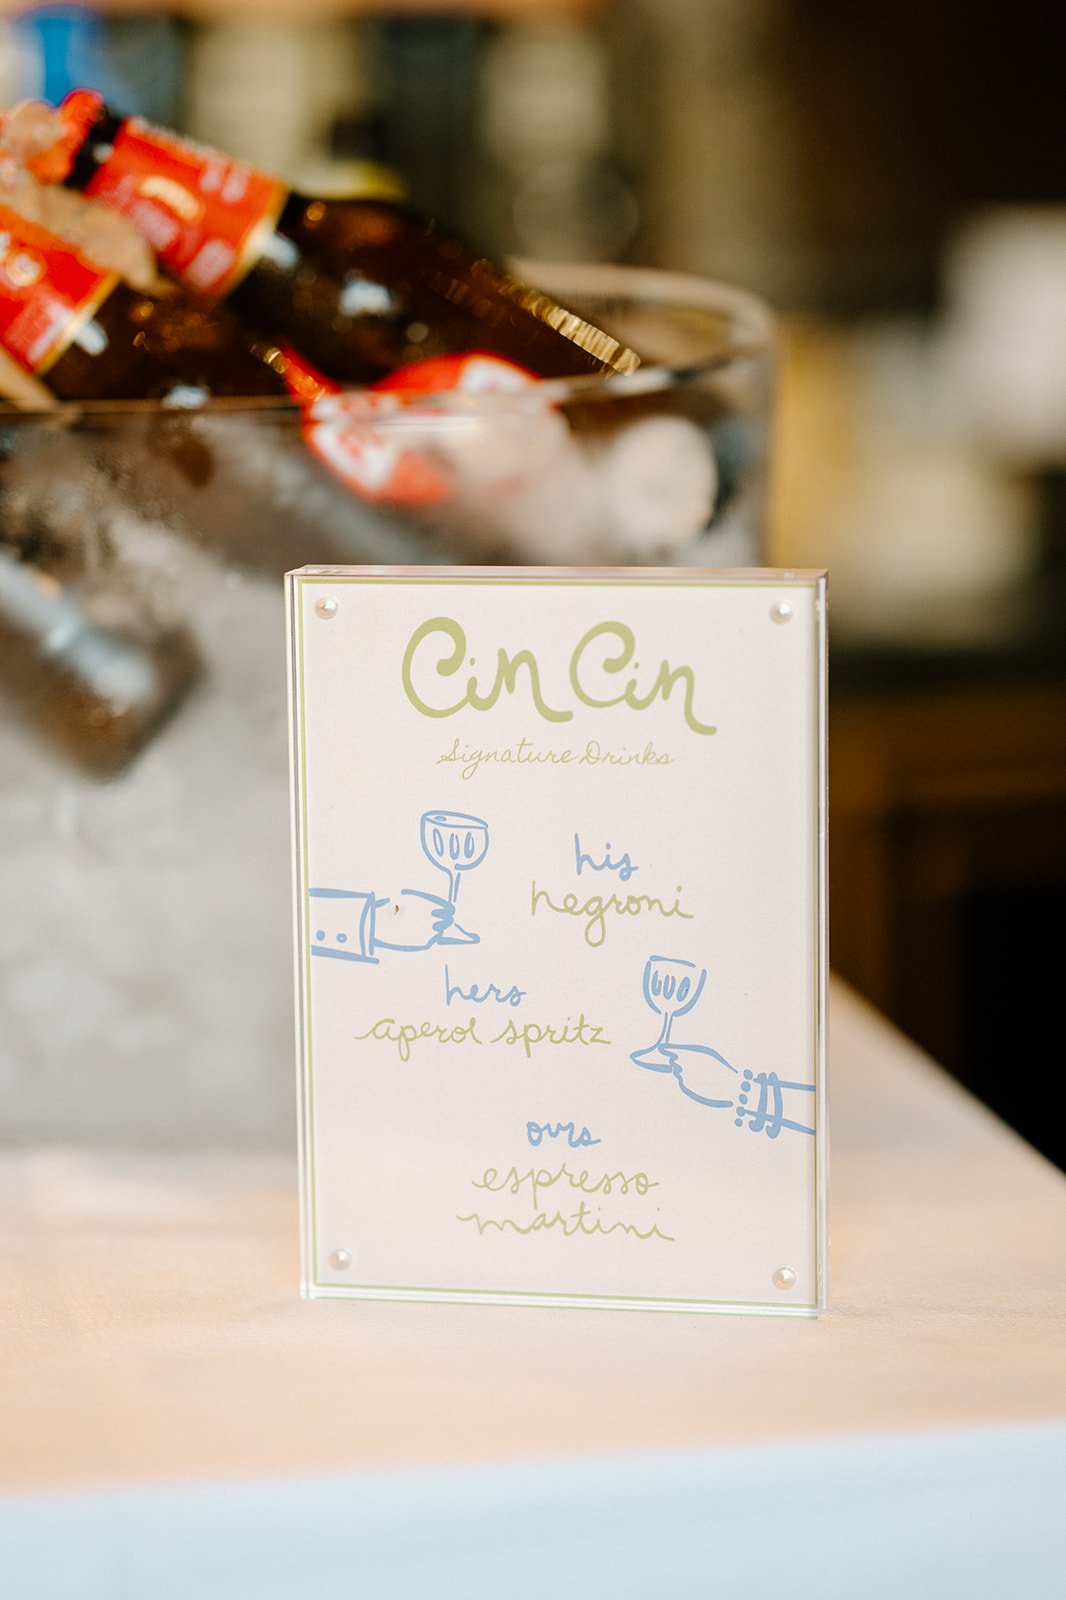 Cin Cin
Signature Drinks
his
negroni
hers
aperol spritz
ours
espresso
martini